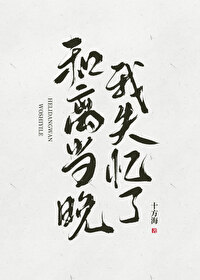 和离当晚
我失忆了
HELIDANGWAN
WOSHIYILE
十方海